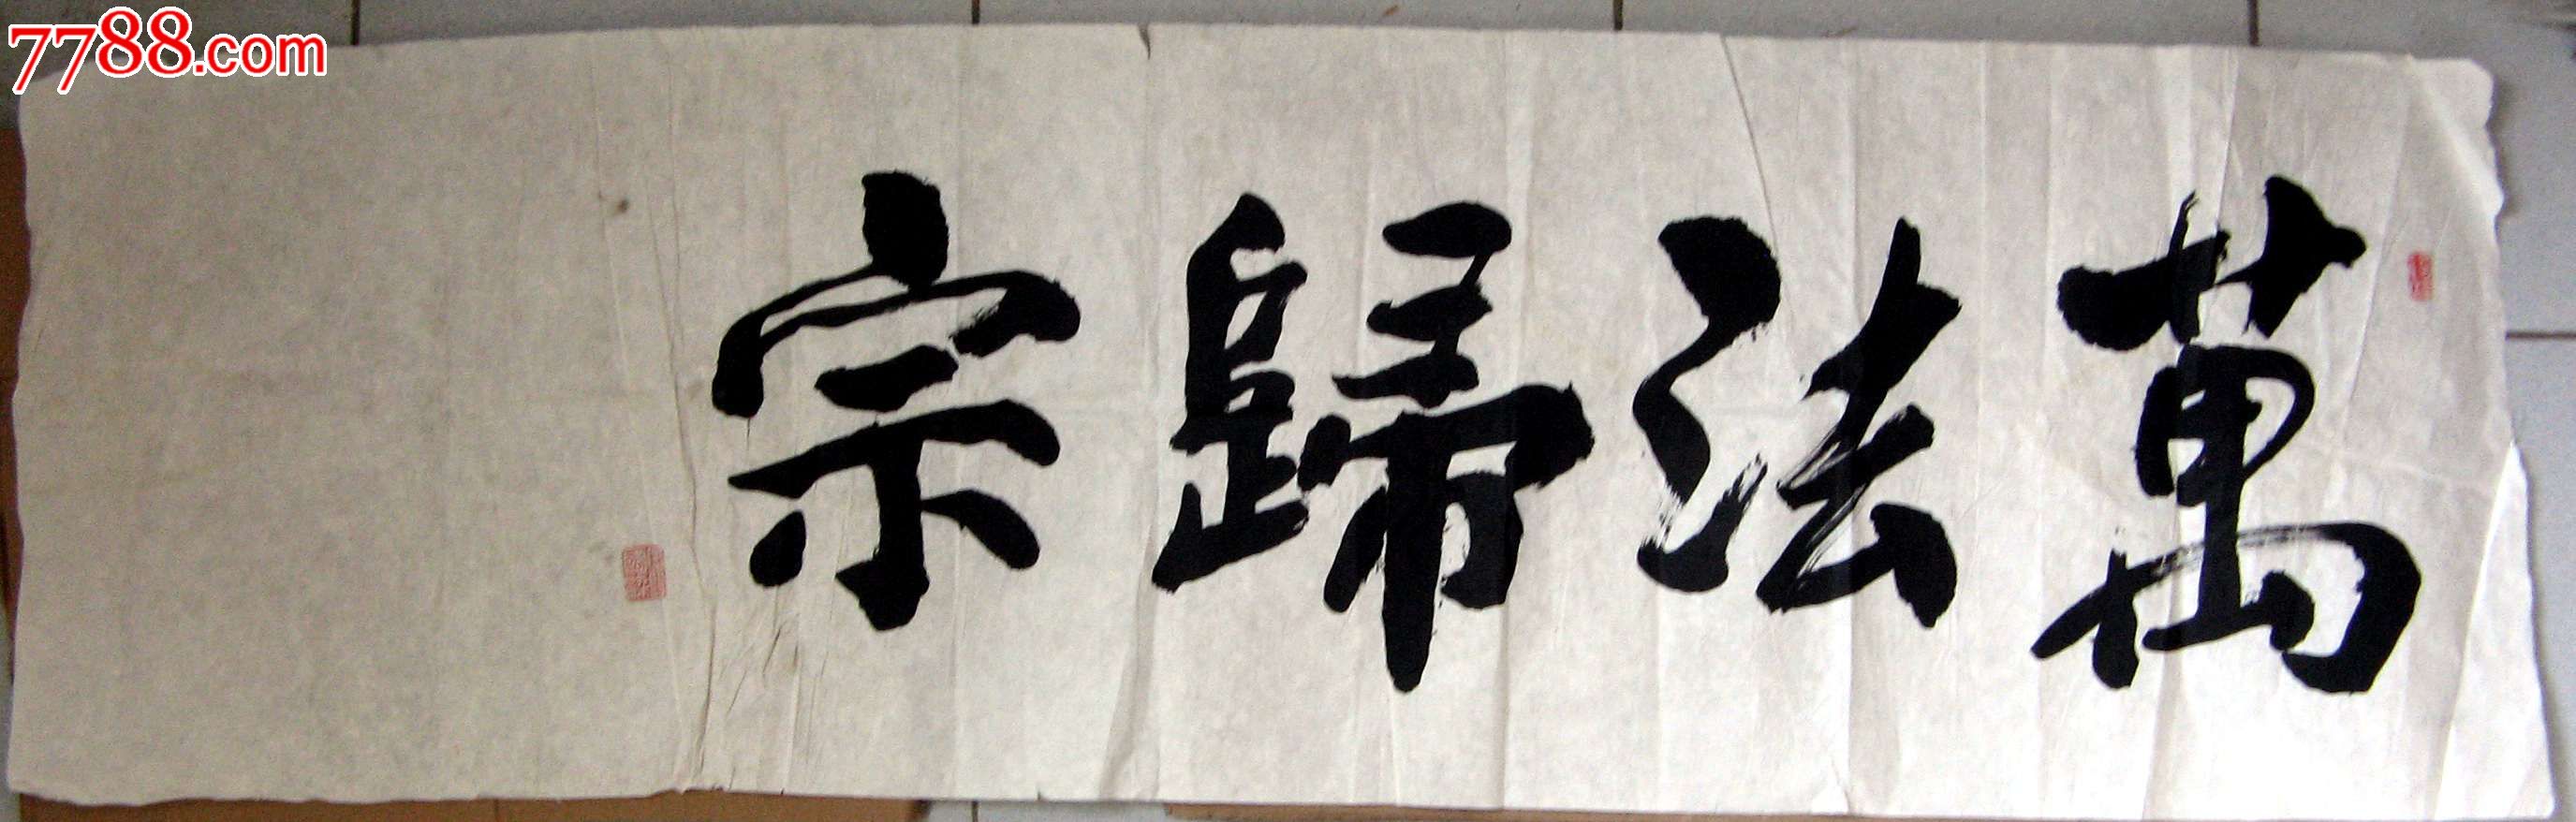 7788.com
萬法歸宗